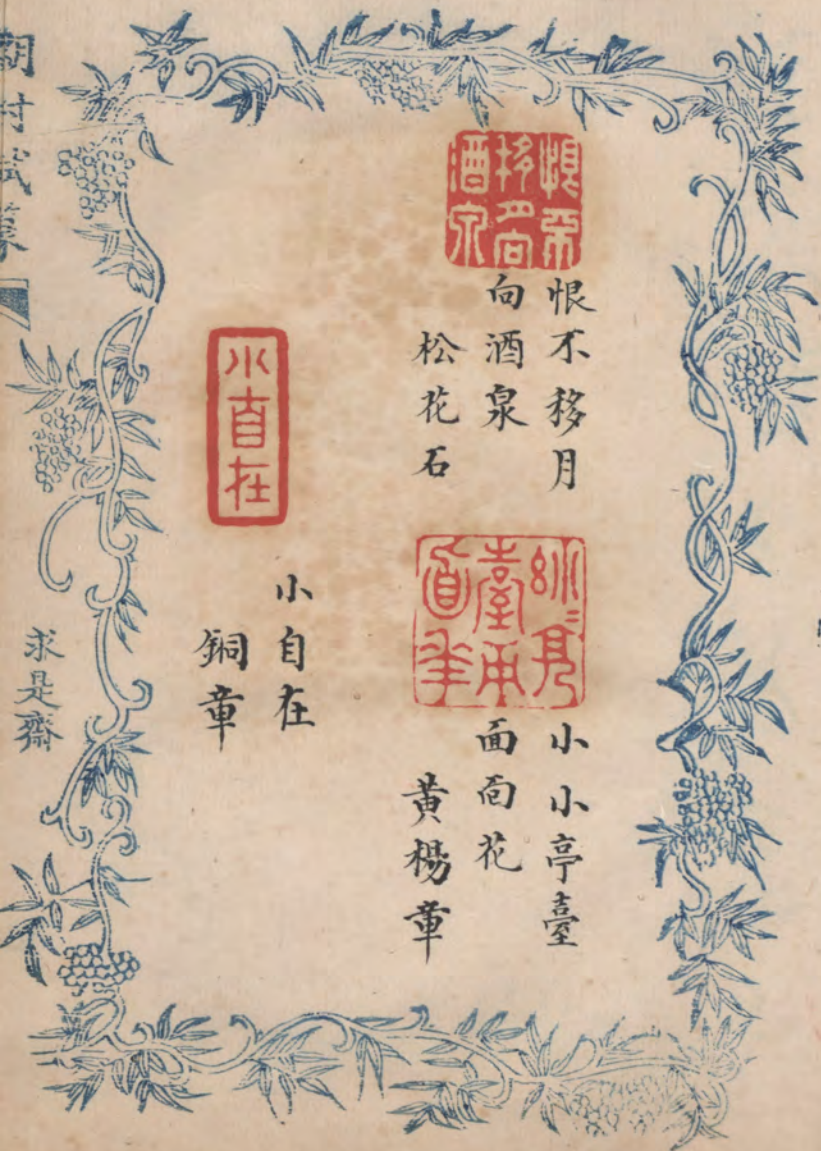 恨不
移月向
酒泉
恨不移月
向酒泉
松花石
小〻亭
臺面
面花
小小亭臺
面面花
黄楊章
小自在
小自在
銅章
求是齋